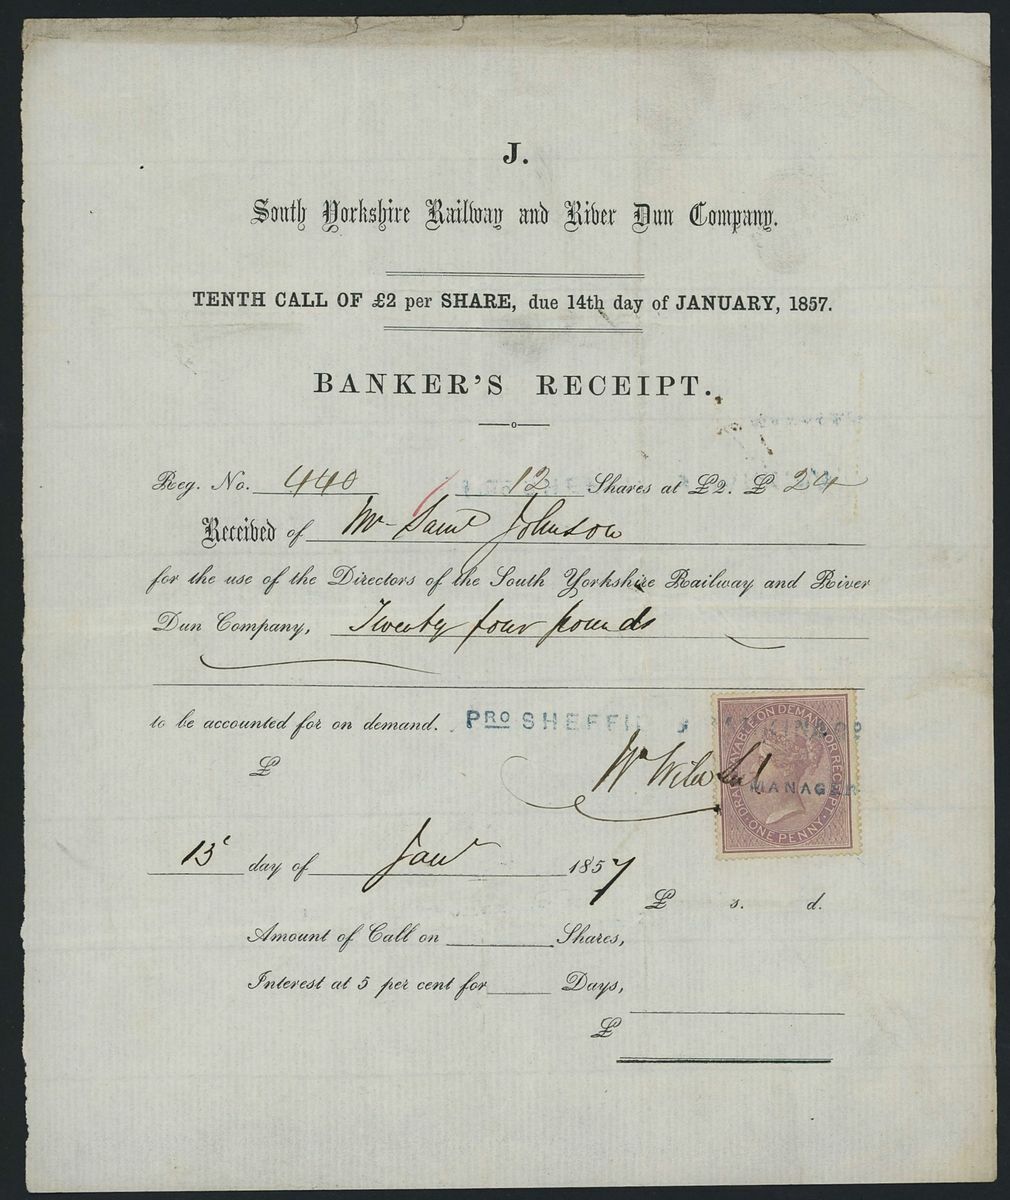 J.
South Yorkshire Railway and River Dun Company.
TENTH CALL OF £2 per SHARE, due 14th day of JANUARY, 1857.
BANKER'S RECEIPT.
Reg. No. 440 12 Shares at £2. £ 24
Received of Mr Saml Johnson
for the use of the Directors of the South Yorkshire Railway and River
Dun Company, Twenty four pounds
to be accounted for on demand. PRO SHEFFI
£ Wm
MANAGER
DRAFT PAYABLE ON DEMAND OR RECEIPT
ONE PENNY
day of Jany 1857
£ s. d.
Amount of Call on Shares,
Interest at 5 per cent for Days,
£